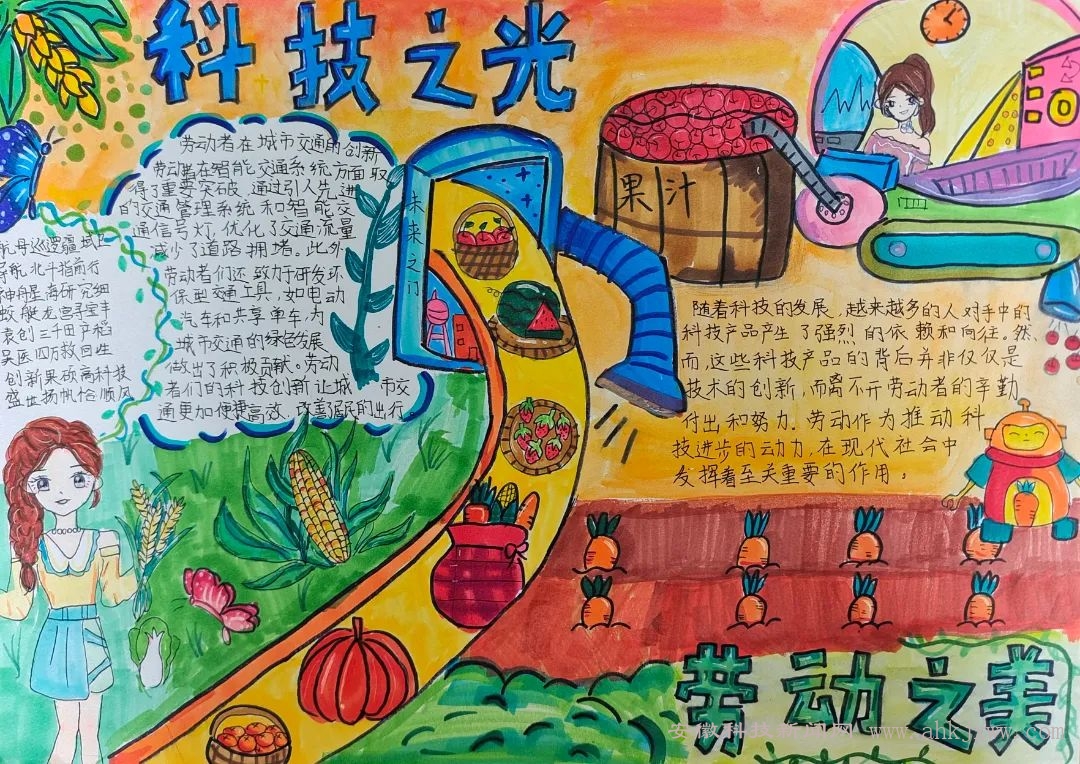 科技之光
劳动者在城市交通的创新
劳动者在智能交通系统方面取
得了重要突破，通过引入先进
的交通管理系统和智能交
通信号灯，优化了交通流量
减少了道路拥堵。此外
劳动者们还致力于研发环
保型交通工具，如电动
汽车和共享单车，为
城市交通的绿色发展
做出了积极贡献。劳动
者们的科技创新让城市交
通更加便捷高效，改善居民的出行
航母巡逻疆域
导航北斗指前行
神舟星海研究细
蛟艇龙宫寻宝丰
袁创三千田产稻
吴医四万救回生
创新果硕高科技
盛世扬帆恰顺风
未来之门
果汁
随着科技的发展，越来越多的人对手中的
科技产品产生了强烈的依赖和向往。然
而，这些科技产品的背后并非仅仅是
技术的创新，而离不开劳动者的辛勤
付出和努力。劳动作为推动科
技进步的动力，在现代社会中
发挥着至关重要的作用。
劳动之美
安徽科技新闻网 www.ahkjxww.com